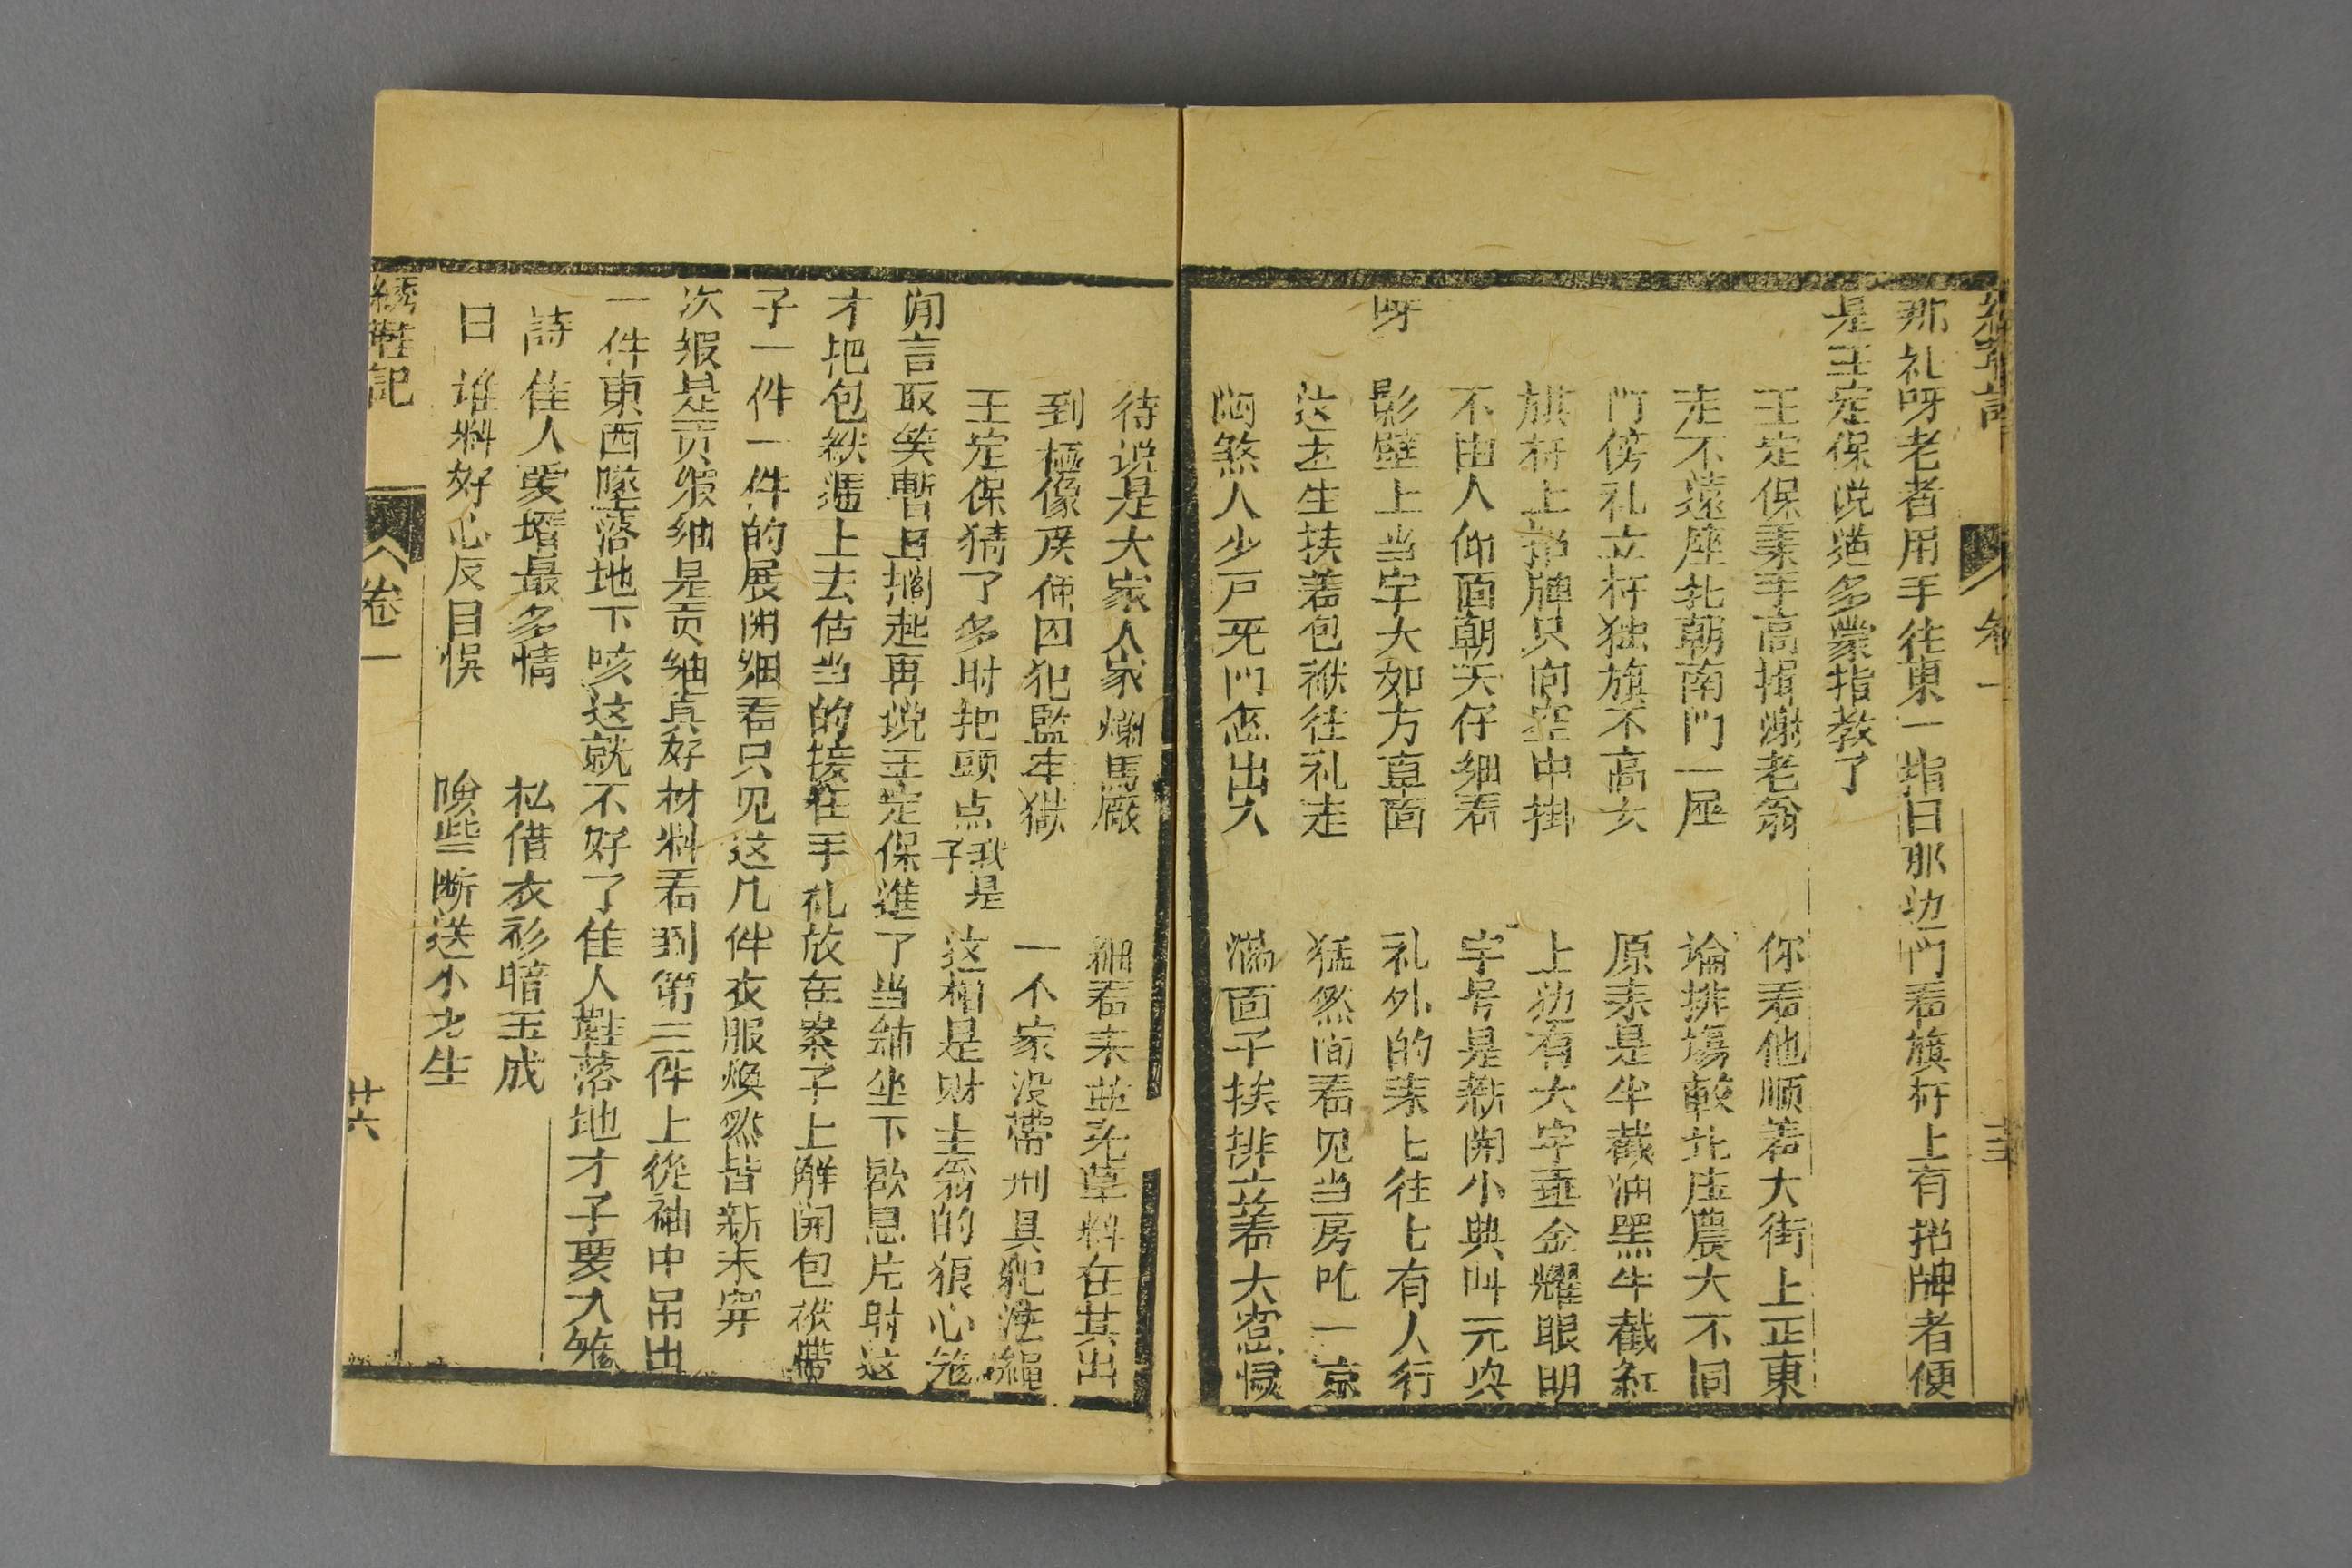 綉鞋記 卷一
那礼呀老者用手往東一指曰那边門看旗杆上有招牌者便
是王定保说道多蒙指教了
王定保秉手高揖謝老翁 你看他顺着大街上正東
走不遠座北朝南門一座 论排場較比庄農大不同
門傍礼立杆独旗不高玄 原来是半截油黑半截紅
旗杆上招牌只向空中掛 上边有大字垂金耀眼明
不由人仰面朝天仔细看 字号是新開小典叫元興
呀 影壁上当字大如方直面 礼外的来匕往匕有人行
这左生扶着包袱往礼走 猛然间看见当房吃一京
陶煞人少戸无門怎出入 满面子挨排立着大窓棂
待说是大家人家爛馬厰 细看来並无草料在其出
到極像废俥囚犯監牢獄 一不家没帶刑具犯法繩
王定保猜了多时把頭点 我是子 这相是财主翁的狠心笼
闲言取笑暫且擱起再说王定保進了当舖坐下歇息片时这
才把包袱递上去估当的接在手礼放在案子上解開包袱帶
子一件一件的展開细看只见这几件衣服焕然皆新未穿
次缎是贡缎细是贡细真好材料看到第三件上從袖中吊出
一件東西墜落地下咳这就不好了佳人鞋落地才子要入笼
詩 佳人爱壻最多情 私借衣衫暗玉成
曰 谁料好心反目悮 險些断送小才生
綉鞋記 卷一 廿六